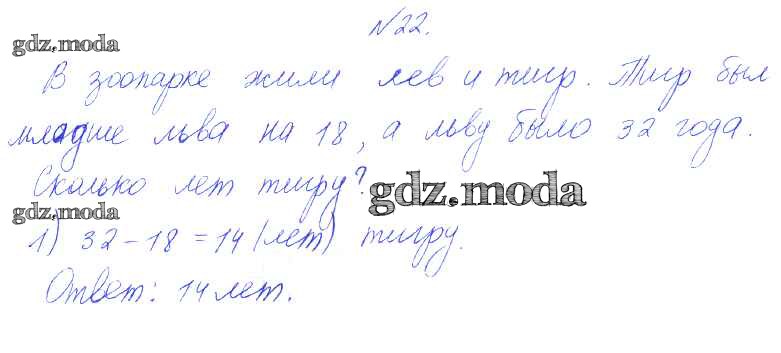 №22.
gdz.moda
В зоопарке жили лев и тигр. Тигр был
младше льва на 18, а льву было 32 года.
Сколько лет тигру?
gdz.moda
gdz.moda
1) 32-18=14 (лет) тигру.
Ответ: 14 лет.